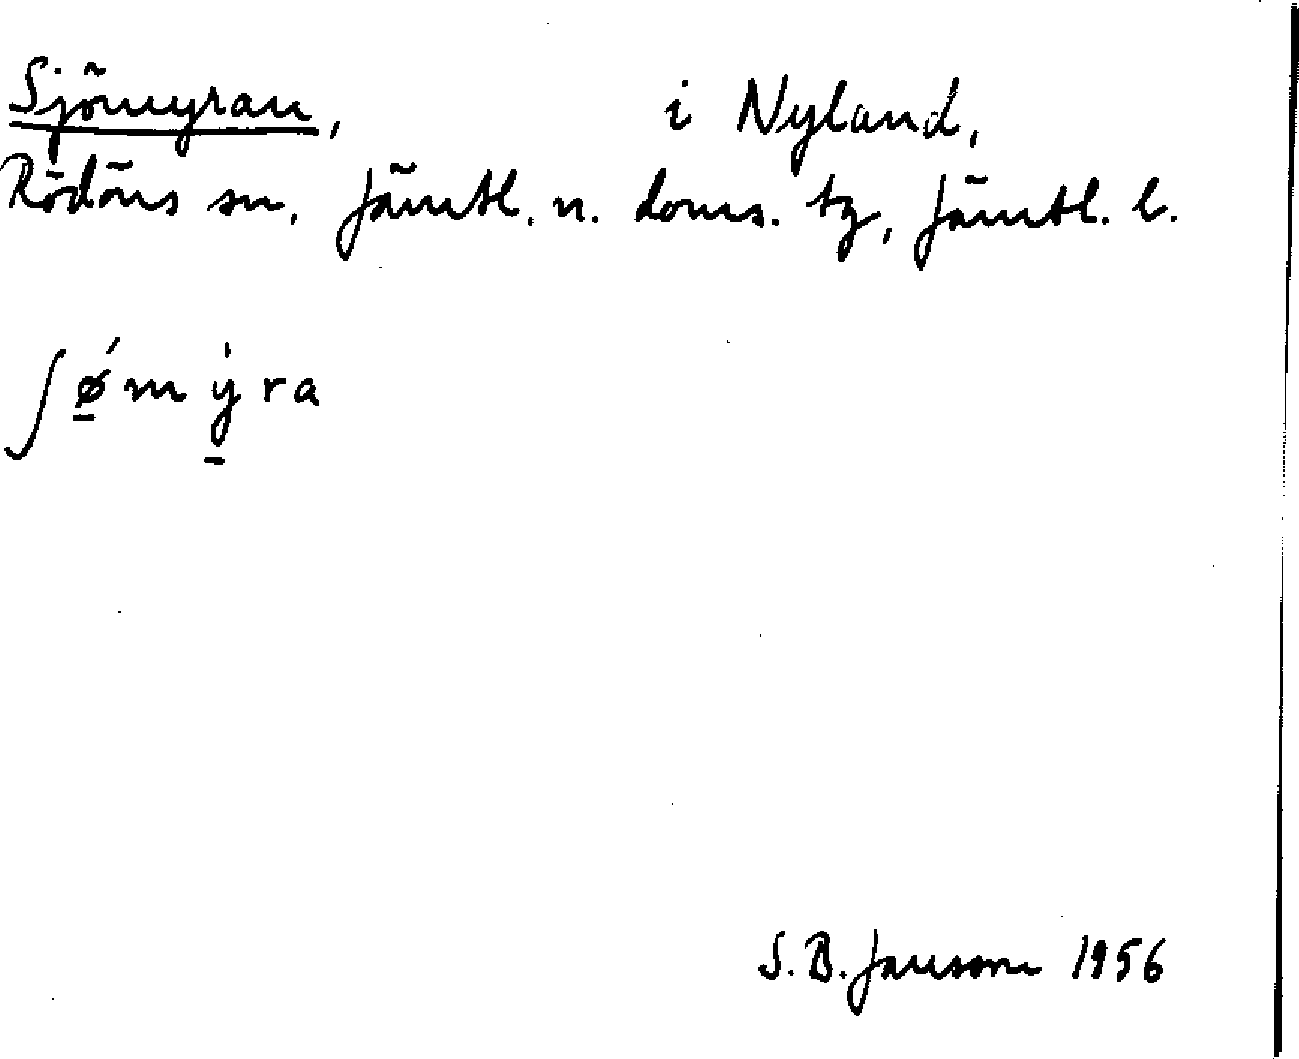 Sjömyran, i Nyland,
Rödöns sn, Jämtl. n. doms. tg, Jämtl. l.
ʃǿ̱m y̱̍ra
S. B. Janson 1956